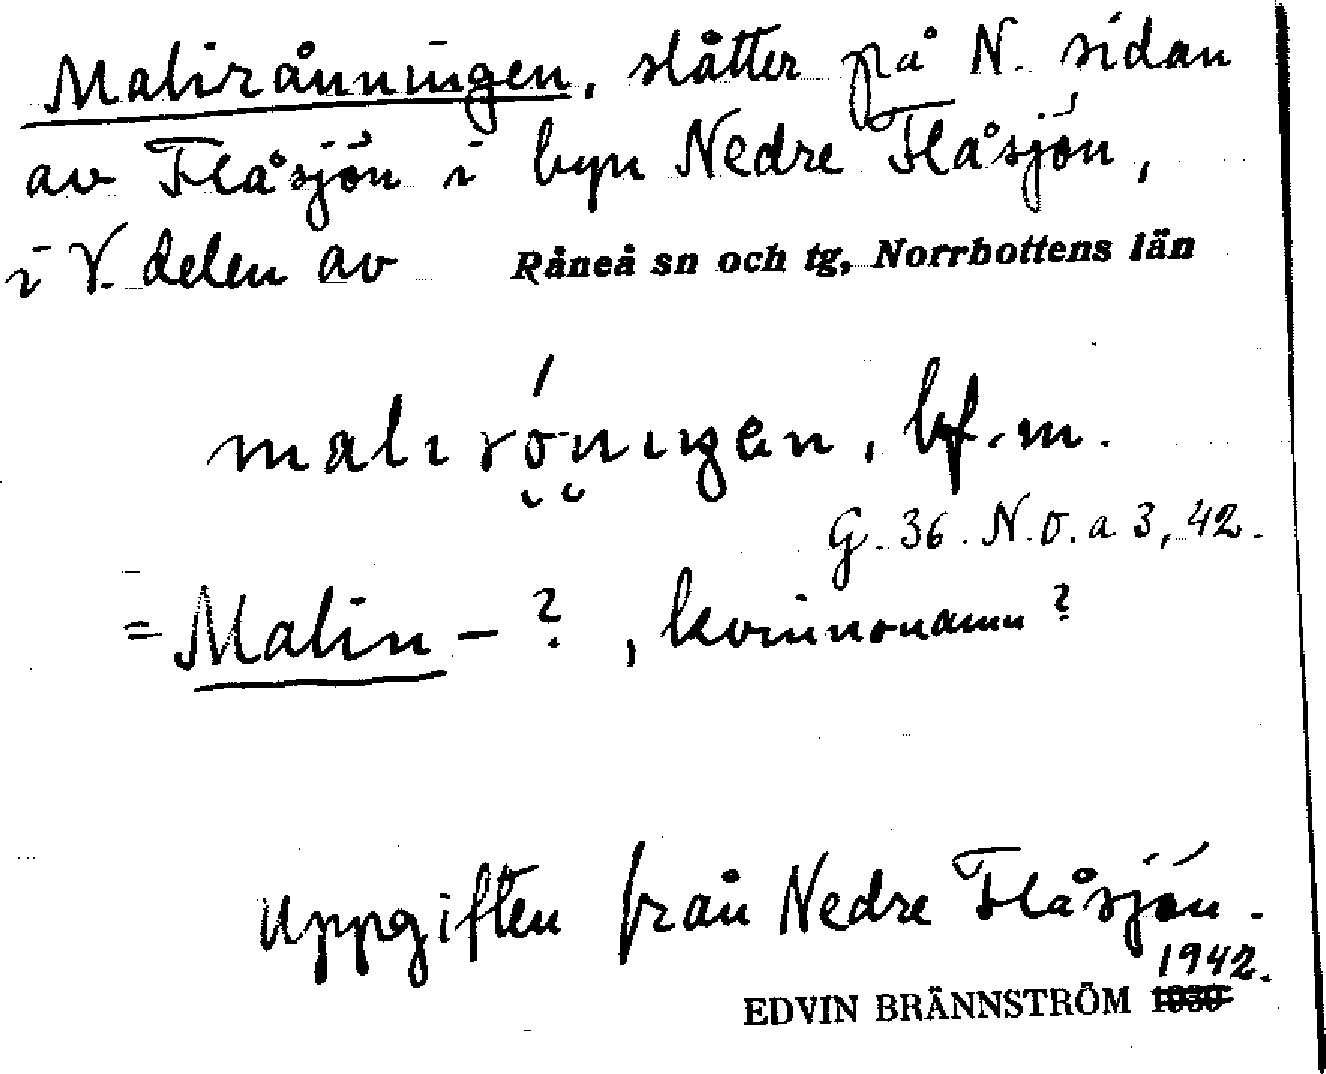 Malirånningen, slåtter på N. sidan
av Flåsjön i byn Nedre Flåsjön,
i V. delen av Råneå sn och tg, Norrbottens län
malı rónıŋen, bf. m.
G. 36. N.O. a 3, 42.
= Malin - ?, kvinnonamn ?
Uppgiften från Nedre Flåsjön.
1942.
EDVIN BRÄNNSTRÖM 1930